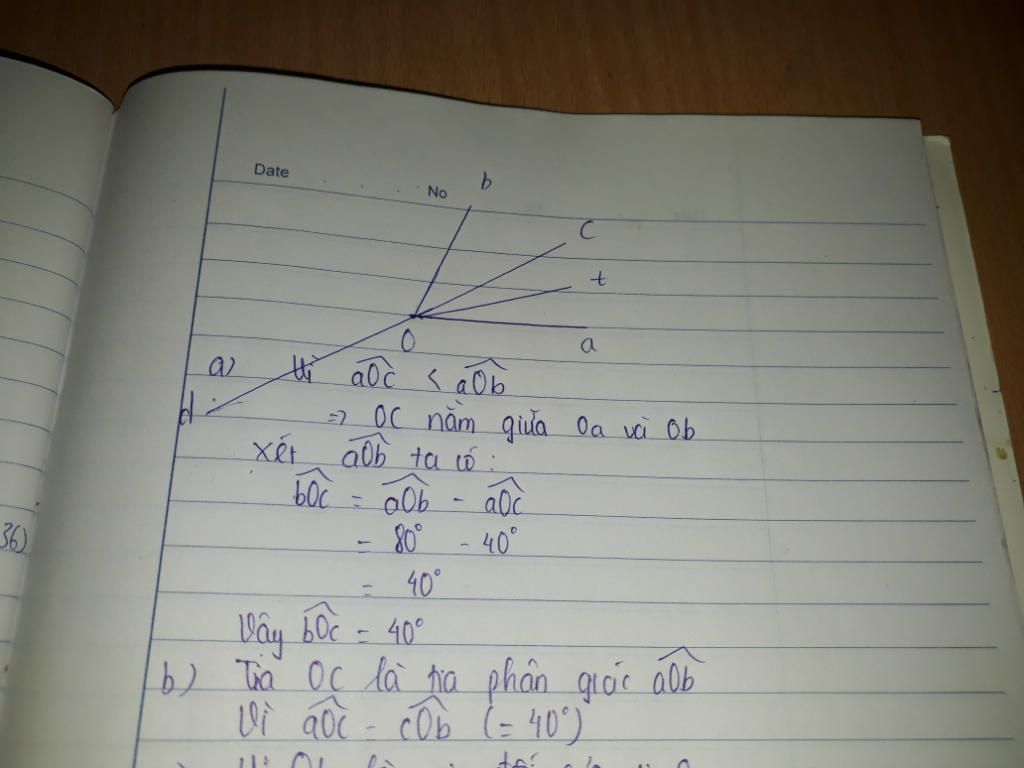 Date
No
b
C
t
O
a
d
a) Vì aOc < aOb
=> OC nằm giữa Oa và Ob
Xét aOb ta có :
bOc = aOb - aOc
= 80° - 40°
= 40°
Vậy bOc = 40°
36)
b) Tia OC là tia phân giác aOb
Vì aOc = cOb (= 40°)